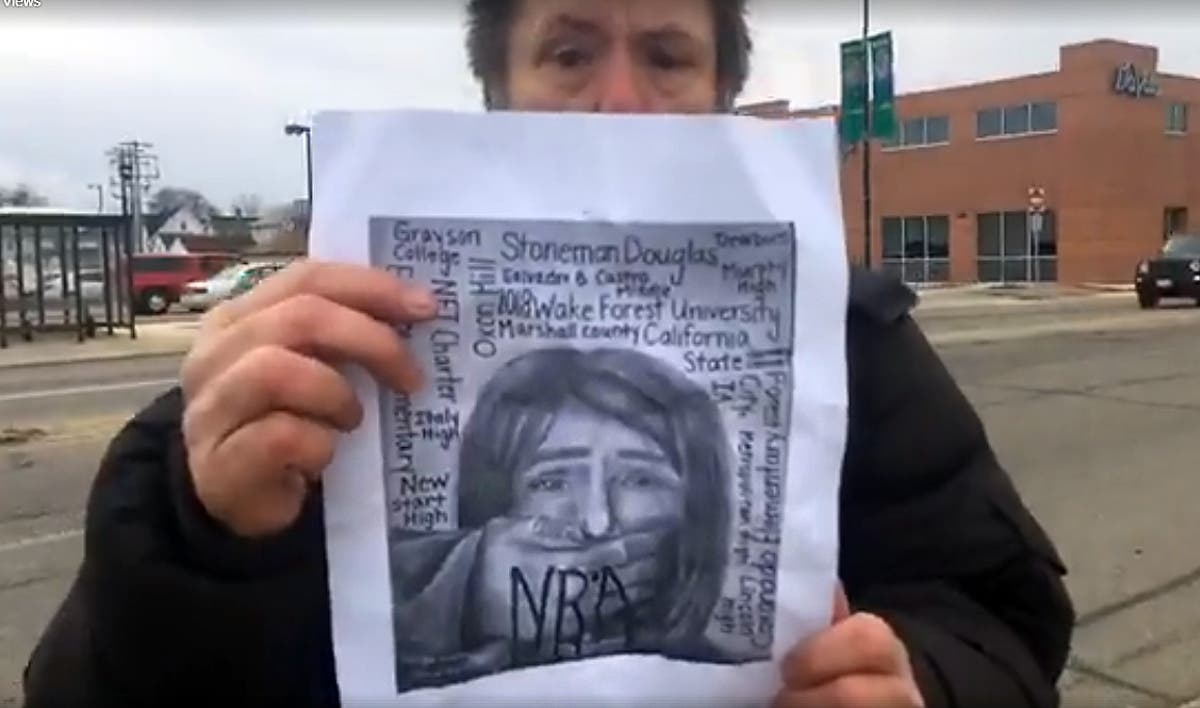 views
Grayson
College
Stoneman Douglas
Dearborn
Salvador B Castro
Middle
Murphy
High
2018 Wake Forest University
Marshall county California
State
Oxon Hill
NET Charter
Italy
High
New
start
High
mentary
City
High Lincoln
High
Forest
Elementary
NRA